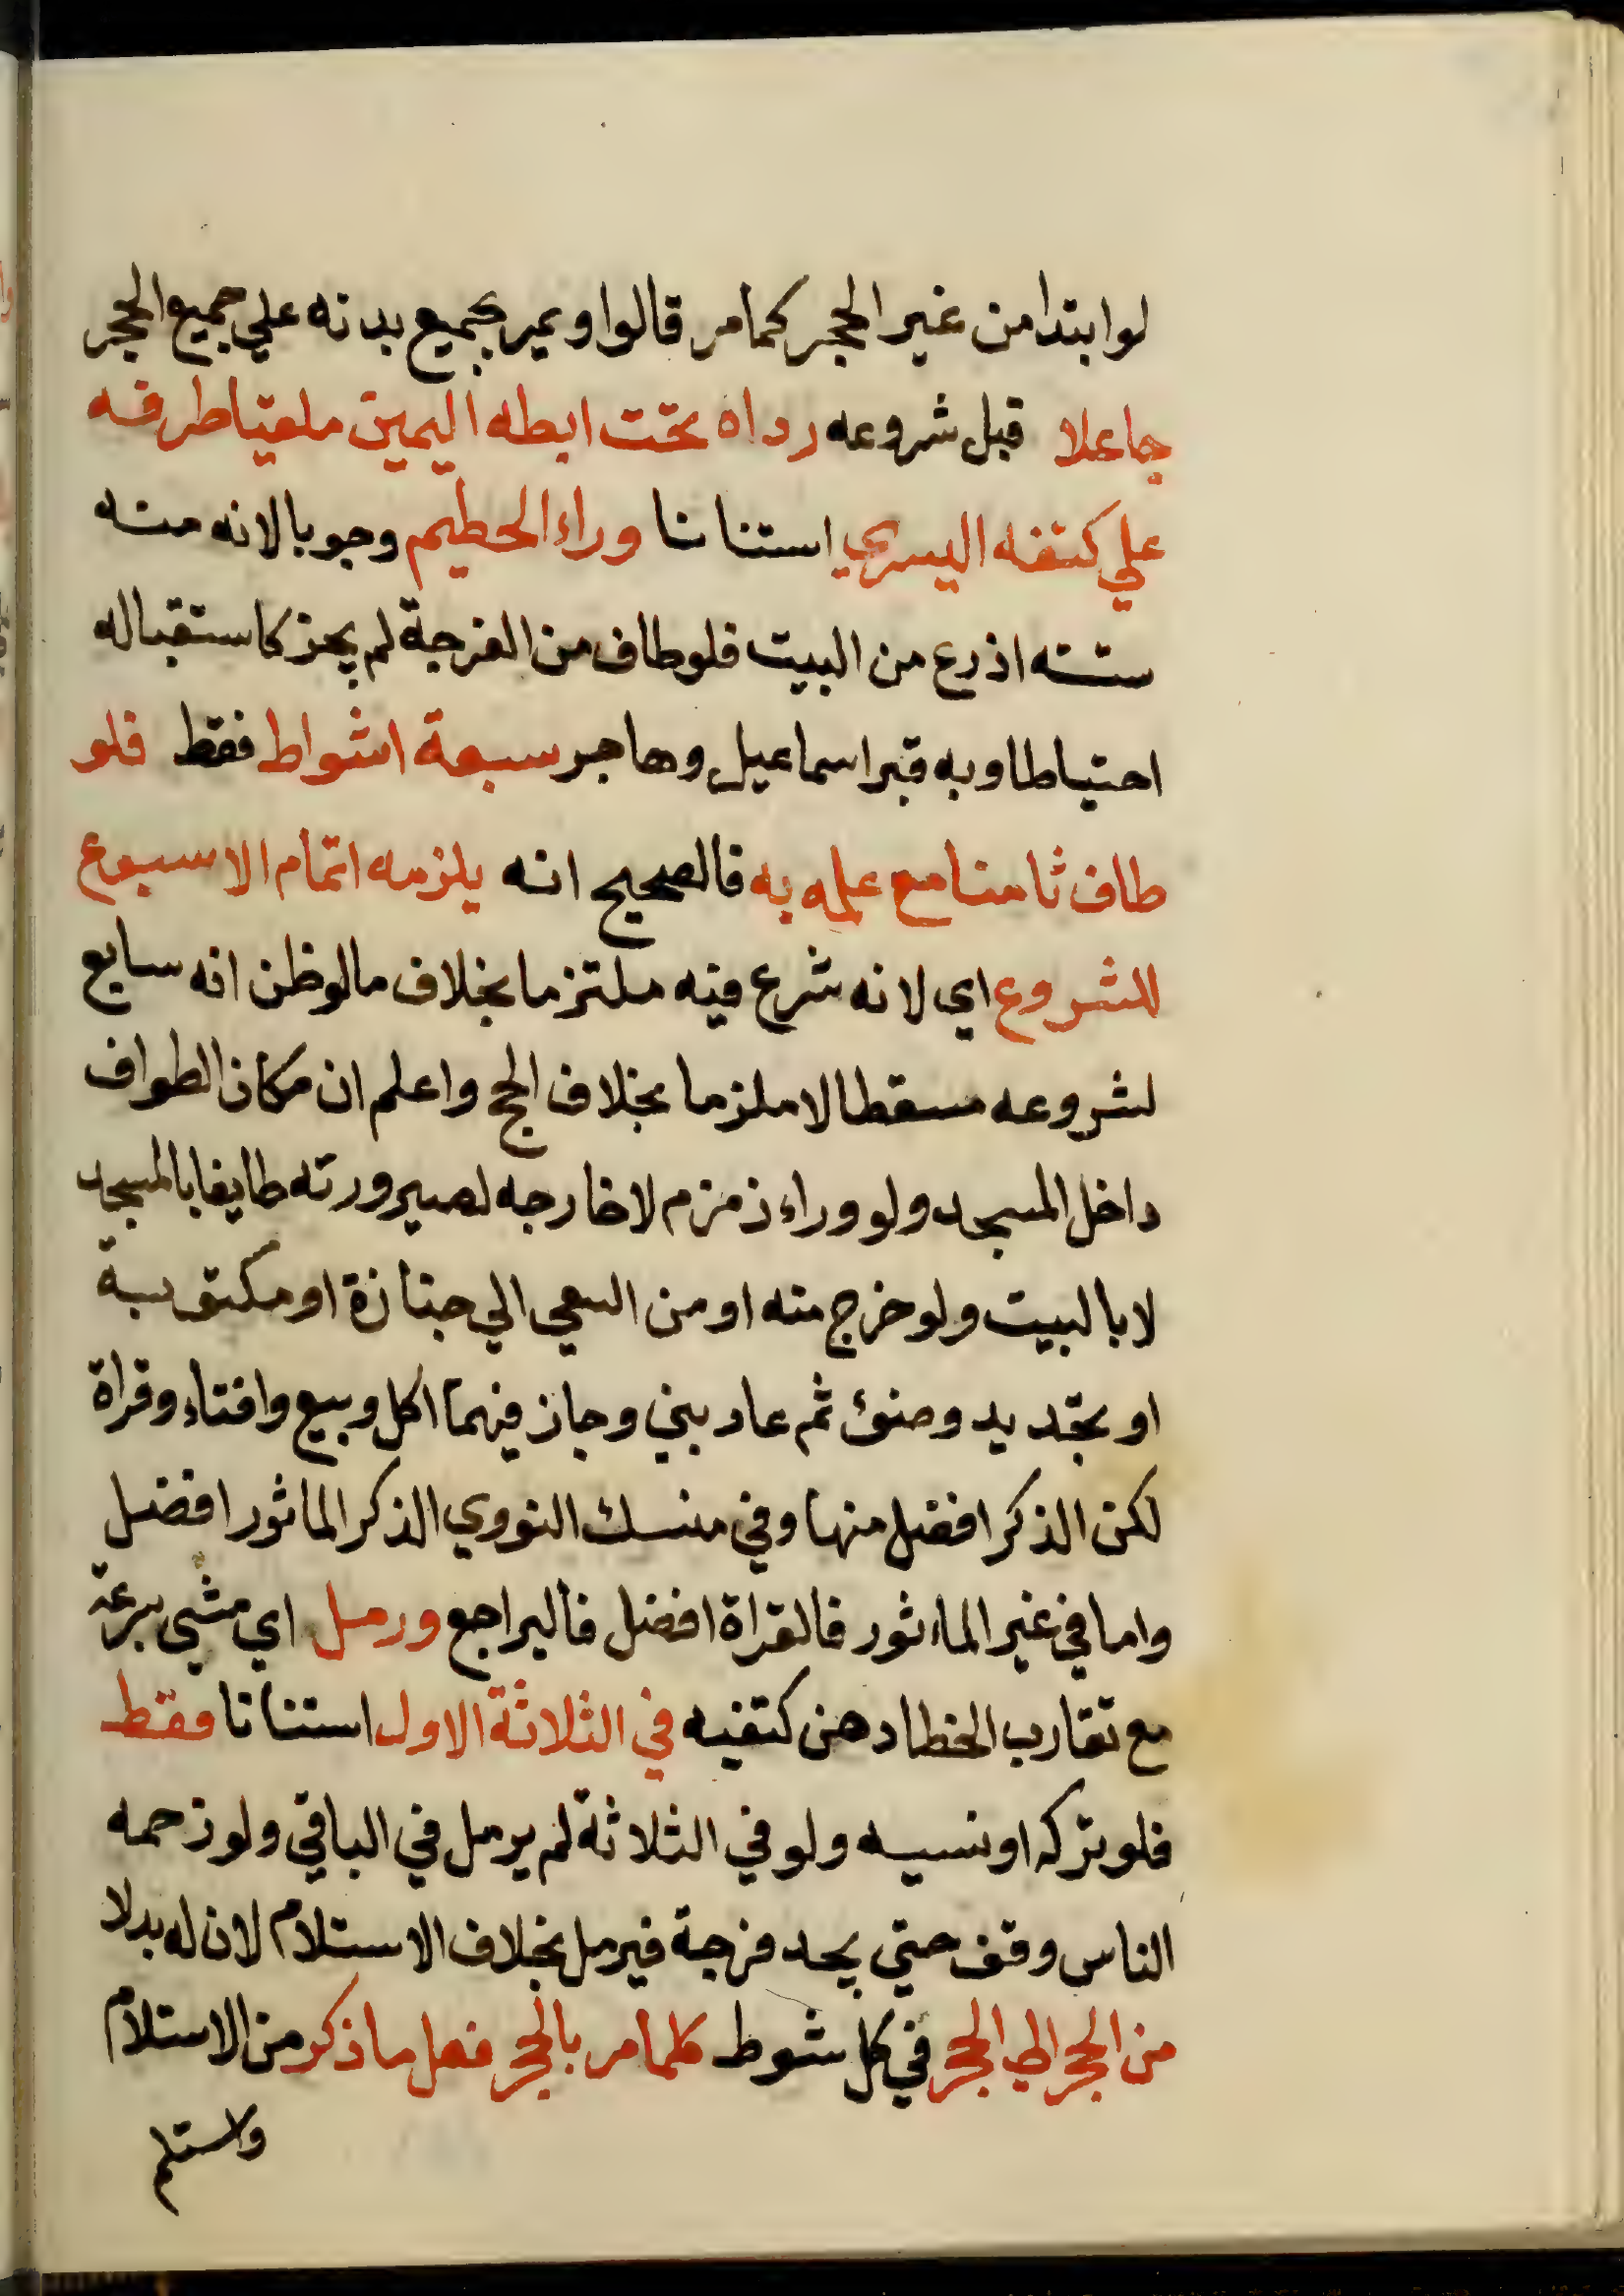 لو ابتدا من غير الحجر كما مر قالوا ويمر بجميع بدنه علي جميع الحجر
جاعلا قبل شروعه رداه تحت ابطه اليمين ملقيا طرفه
علي كتفه اليسري استنانا وراء الحطيم وجوبا لانه منه
ستة اذرع من البيت فلو طاف من الفرجة لم يجز كاستقباله
احتياطا وبه قبر اسماعيل وهاجر سبعة اشواط فقط فلو
طاف ثامنا مع علمه به فالصحيح انه يلزمه اتمام الاسبوع
للشروع اي لانه شرع فيه ملتزما بخلاف مالو ظن انه سابع
لشروعه مسقطا لا ملزما بخلاف الحج واعلم ان مكان الطواف
داخل المسجد ولو وراء زمزم لا خارجه لصيرورته طايفا بالمسجد
لا بالبيت ولو خرج منه او من السعي الي جنازة او مكتوبة
او بتجديد وضوء ثم عاد بني وجاز فيهما اكل وبيع وافتاء وقراة
لكن الذكر افضل منها وفي منسك النووي الذكر الماثور افضل
واما في غير الماءثور فالقراة افضل فاليراجع ورمل اي مشي بسرعة
مع تقارب الخطا وهز كتفيه في الثلاثة الاول استنانا فقط
فلو تركه او نسيه ولو في الثلاثة لم يرمل في الباقي ولو زحمه
الناس وقف حتي يجد فرجة فيرمل بخلاف الاستلام لان له بدلا
من الحجر الي الحجر في كل شوط كلما مر بالحجر فعل ما ذكر من الاستلام
واستلم